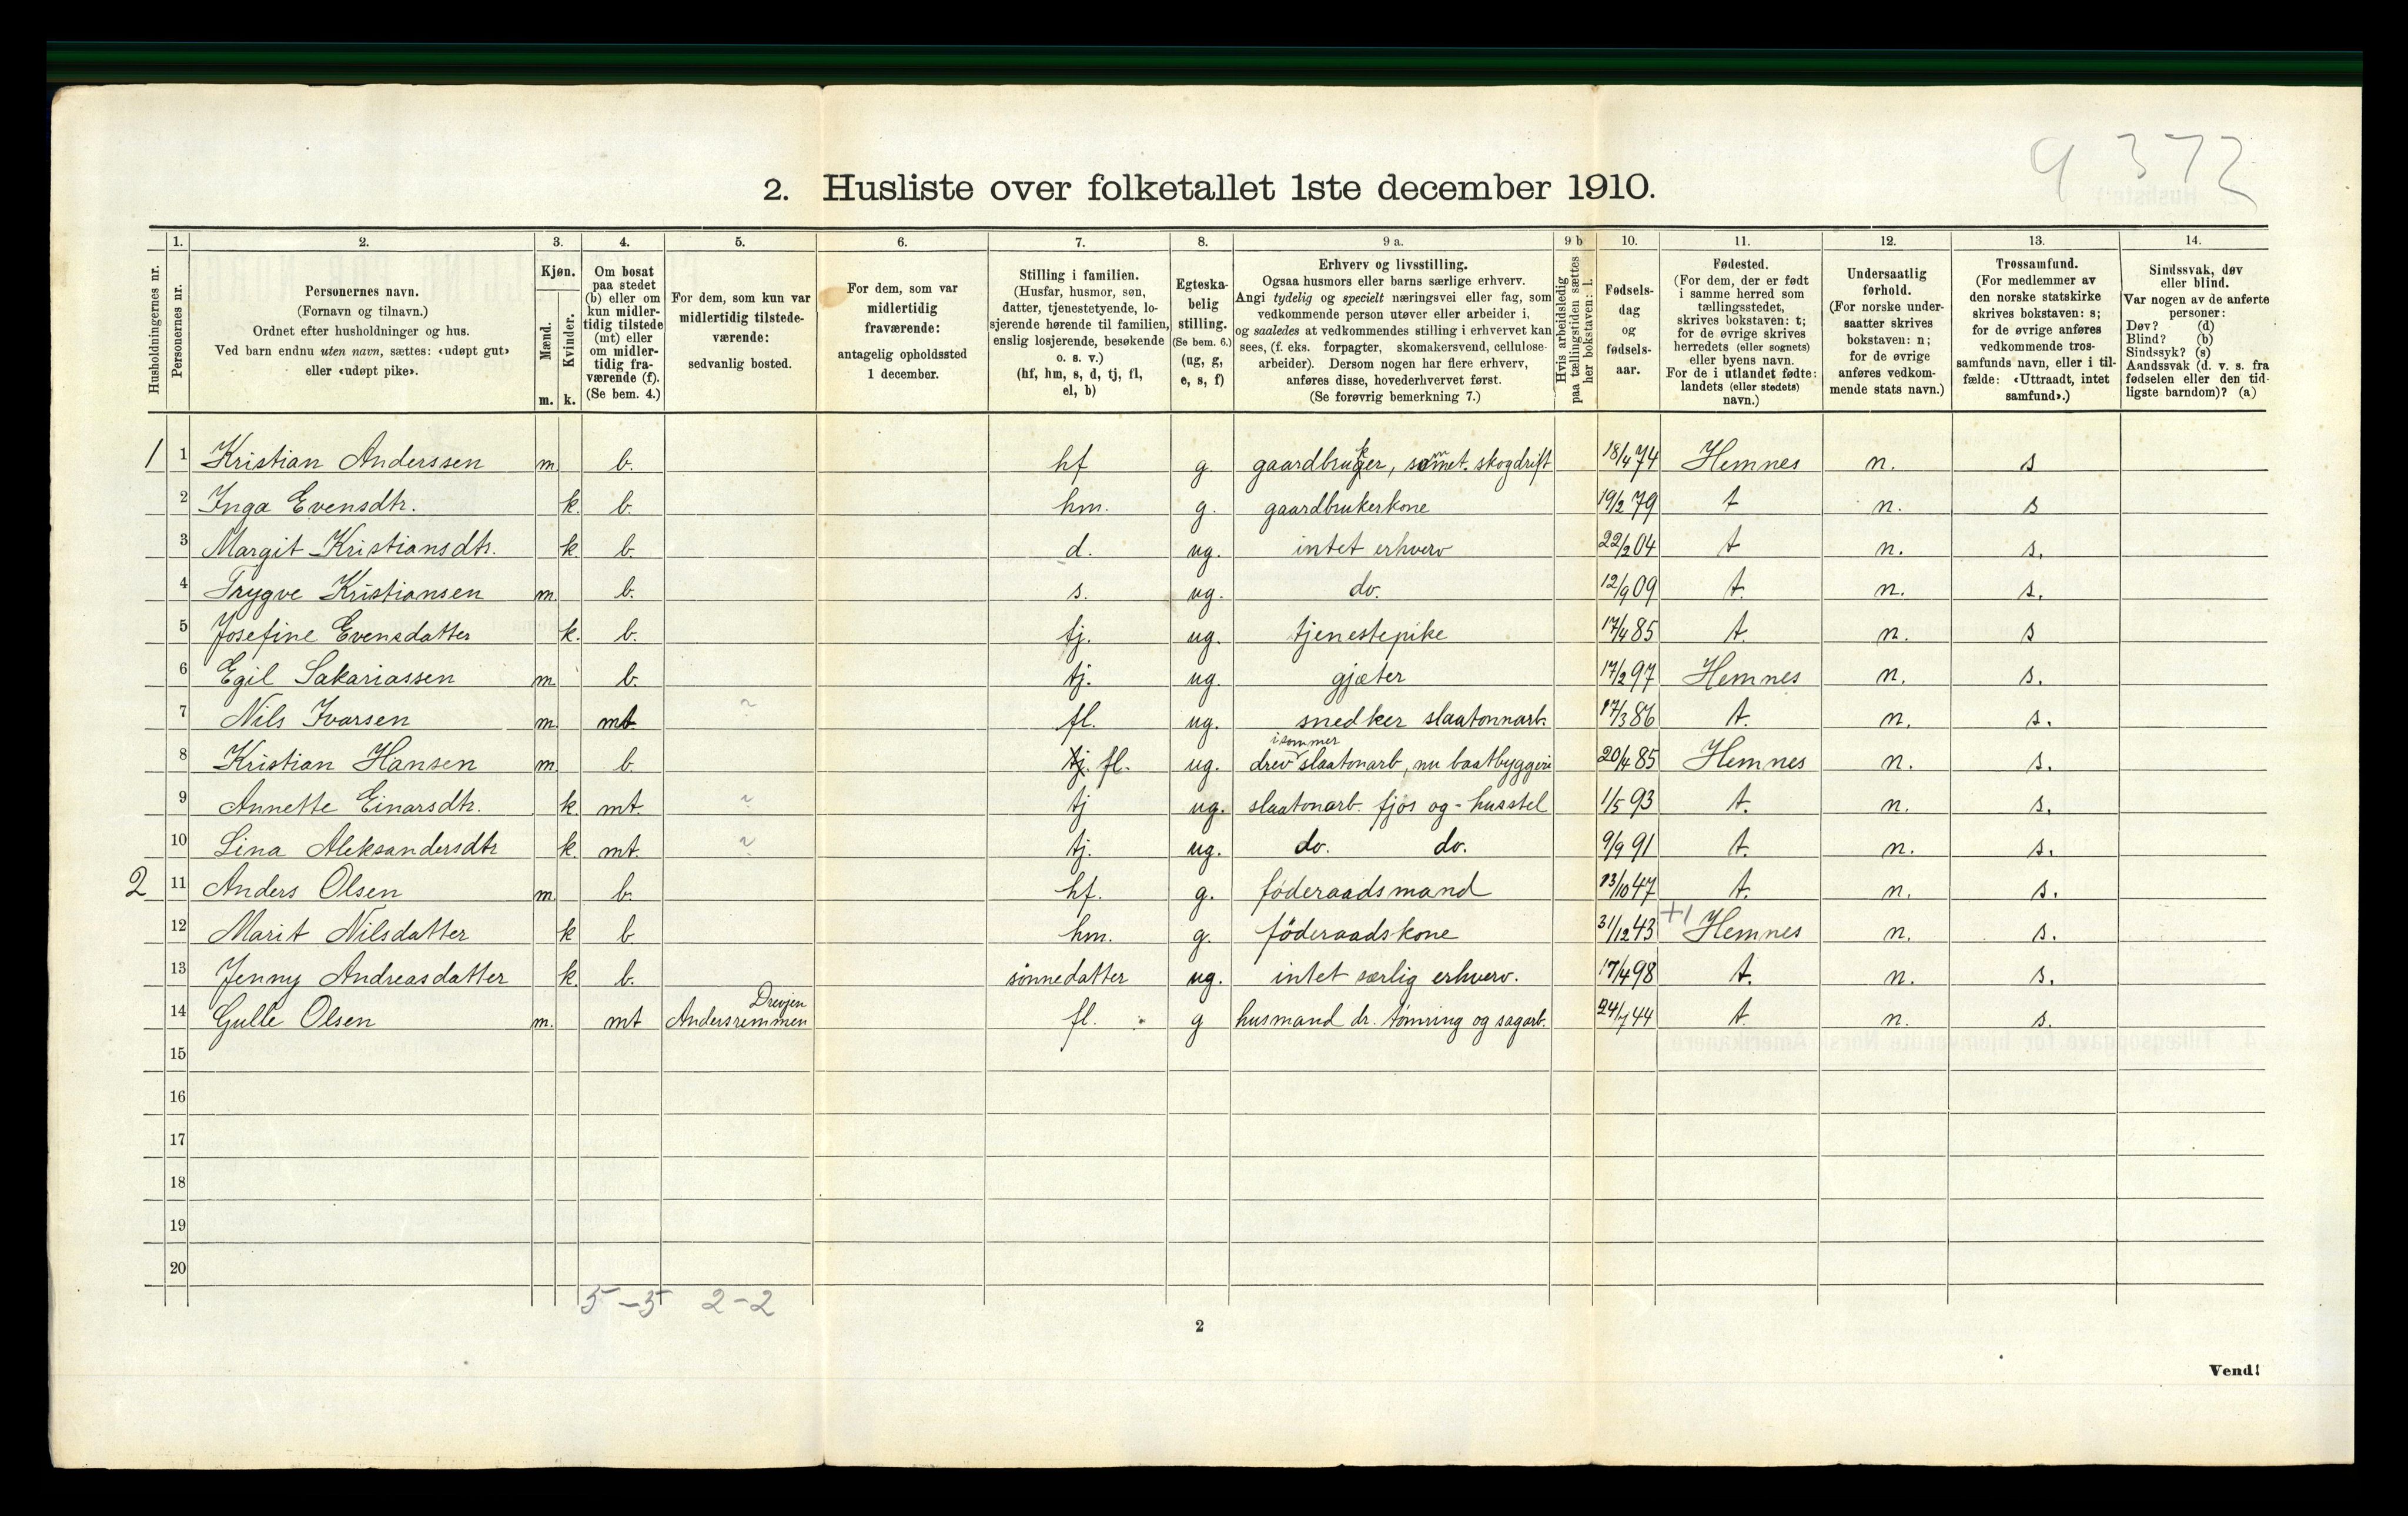 9 372
2. Husliste over folketallet 1ste december 1910.
1. 2. 3. 4. 5. 6. 7. 8. 9 a. 9 b 10. 11. 12. 13. 14.
Husholdningernes nr.
Personernes nr.
Personernes navn.
(Fornavn og tilnavn.)
Ordnet efter husholdninger og hus.
Ved barn endnu uten navn, sættes: «udøpt gut»
eller «udøpt pike».
Kjøn.
Mænd.
Kvinder.
m. k.
Om bosat
paa stedet
(b) eller om
kun midler-
tidig tilstede
(mt) eller
om midler-
tidig fra-
værende (f).
(Se bem. 4.)
For dem, som kun var
midlertidig tilstede-
værende:
sedvanlig bosted.
For dem, som var
midlertidig
fraværende:
antagelig opholdssted
1 december.
Stilling i familien.
(Husfar, husmor, søn,
datter, tjenestetyende, lo-
sjerende hørende til familien,
enslig losjerende, besøkende
o. s. v.)
(hf, hm, s, d, tj, fl,
el, b)
Egteska-
belig
stilling.
(Se bem. 6.)
(ug, g,
e, s, f)
Erhverv og livsstilling.
Ogsaa husmors eller barns særlige erhverv.
Angi tydelig og specielt næringsvei eller fag, som
vedkommende person utøver eller arbeider i,
og saaledes at vedkommendes stilling i erhvervet kan
sees, (f. eks. forpagter, skomakersvend, cellulose-
arbeider). Dersom nogen har flere erhverv,
anføres disse, hovederhvervet først.
(Se forøvrig bemerkning 7.)
Hvis arbeidsledig
paa tællingstiden sættes
her bokstaven: l.
Fødsels-
dag
og
fødsels-
aar.
Fødested.
(For dem, der er født
i samme herred som
tællingsstedet,
skrives bokstaven: t;
for de øvrige skrives
herredets (eller sognets)
eller byens navn.
For de i utlandet fødte:
landets (eller stedets)
navn.)
Undersaatlig
forhold.
(For norske under-
saatter skrives
bokstaven: n;
for de øvrige
anføres vedkom-
mende stats navn.)
Trossamfund.
(For medlemmer av
den norske statskirke
skrives bokstaven: s;
for de øvrige anføres
vedkommende tros-
samfunds navn, eller i til-
fælde: «Uttraadt, intet
samfund».)
Sindssvak, døv
eller blind.
Var nogen av de anførte
personer:
Døv? (d)
Blind? (b)
Sindssyk? (s)
Aandssvak (d. v. s. fra
fødselen eller den tid-
ligste barndom)? (a)
1 1 Kristian Anderssen m. b. hf g. gaardbruker, samt. skogdrift 18/4 74 Hemnes n. s
2 Inga Evensdtr. k. b. hm. g. gaardbrukerkone 19/2 79 t n. s
3 Margit Kristiansdtr. k b. d. ug. intet erhverv 22/2 04 t n. s.
4 Trygve Kristiansen m. b. s. ug. do. 12/9 09 t. n. s.
5 Josefine Evensdatter k. b. tj. ug. tjenestepike 17/4 85 t. n. s
6 Egil Sakariassen m. b. tj. ug. gjæter 17/2 97 Hemnes n. s.
7 Nils Ivarsen m. mt ~ fl. ug. snedker slaatonnarb. 17/3 86 t. n. s.
i sommer
8 Kristian Hansen m. b. tj. fl. ug. drev slaatonarb, nu baatbyggeri 20/4 85 Hemnes n. s.
9 Annette Einarsdtr. k. mt. ~ tj ug. slaatonarb. fjos og-husstel 1/5 93 t. n. s.
10 Lina Aleksandersdtr k. mt. ~ tj. ug. do. do. 9/9 91 t. n. s.
2 11 Anders Olsen m. b. hf. g. føderaadsmand 13/10 47 t. n. s.
12 Marit Nilsdatter k b. hm. g. føderaadskone 31/12 43 +1 Hemnes n. s.
13 Jenny Andreasdatter k. b. sønnedatter ug. intet særlig erhverv. 17/4 98 t. n. s.
Drevjen
14 Gulle Olsen m. mt Andersremmen fl. g husmand dr. tømring og sagarb. 24/7 44 t. n. s.
15
16
17
18
19
20
5 - 5 2 - 2
2
Vend!